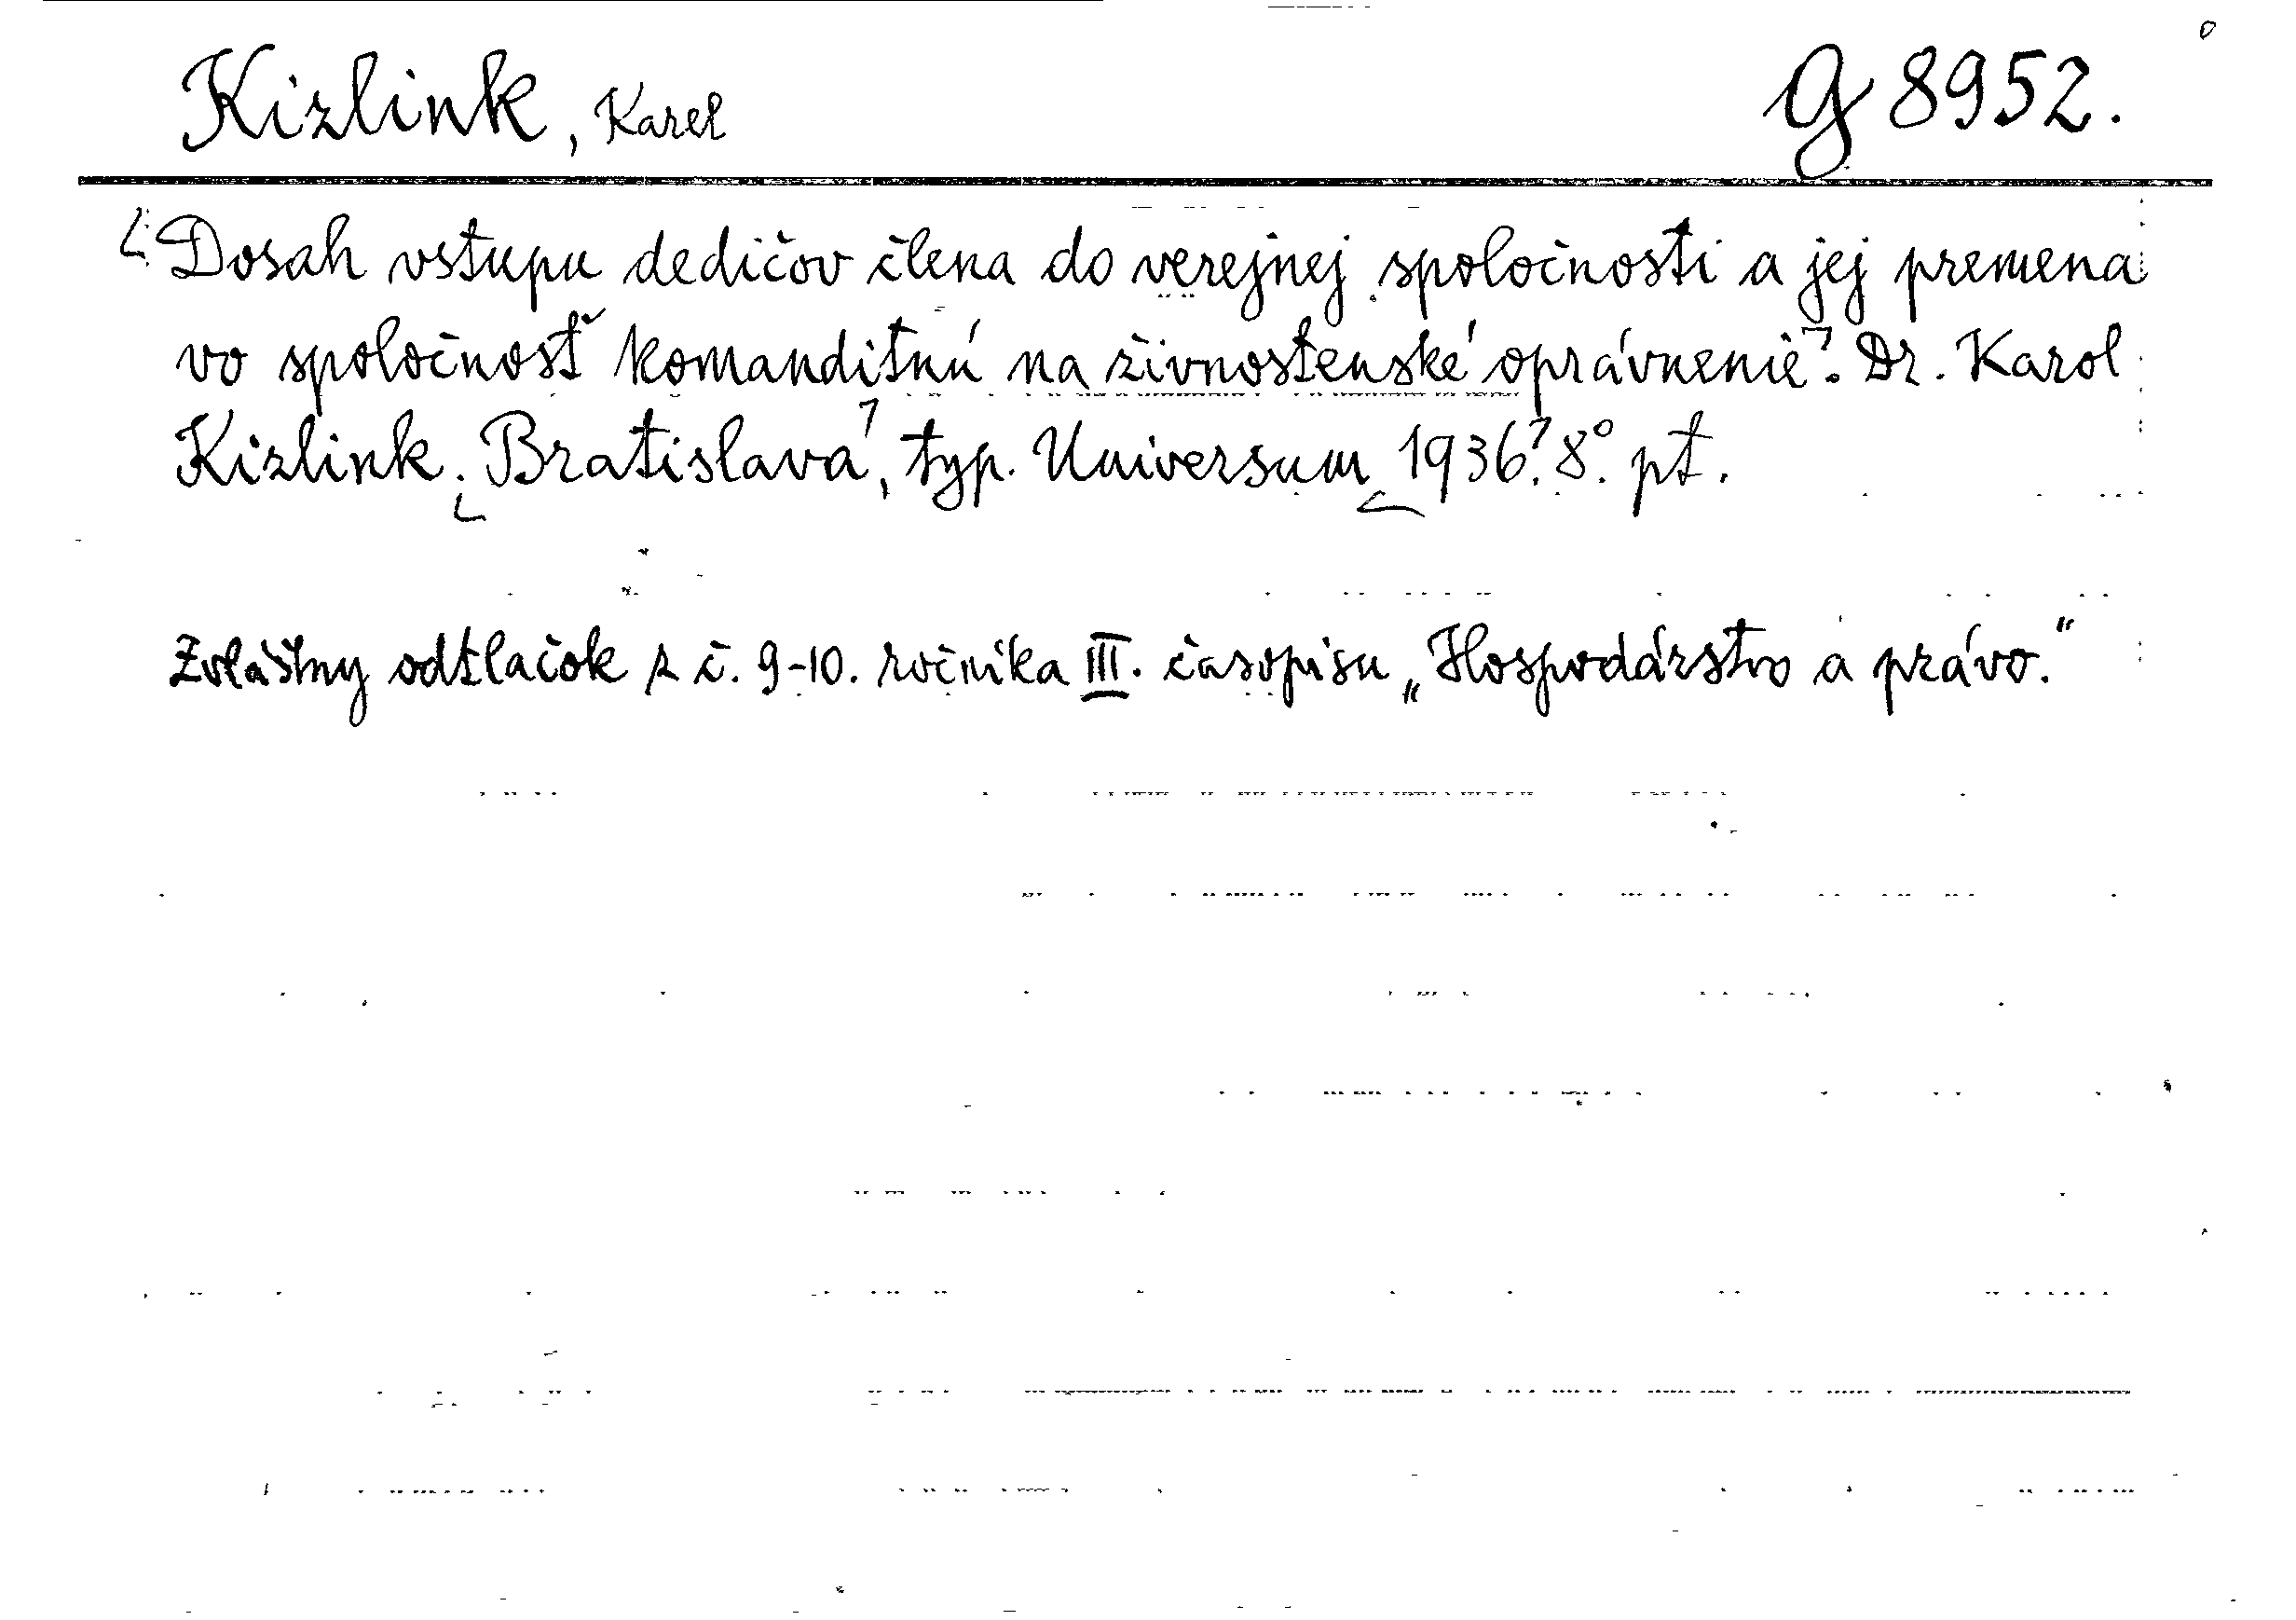 Kizlink, Karel
G 8952.
Dosah vstupu dedičov člena do verejnej spoločnosti a jej premena
vo spoločnosť komanditnú na živnostenské oprávnenie. Dr. Karol
Kizlink. Bratislava, typ. Universum 1936. 8°. pt.
Zvláštny odtlačok z č. 9-10. ročníka III. časopisu „Hospodárstvo a právo."